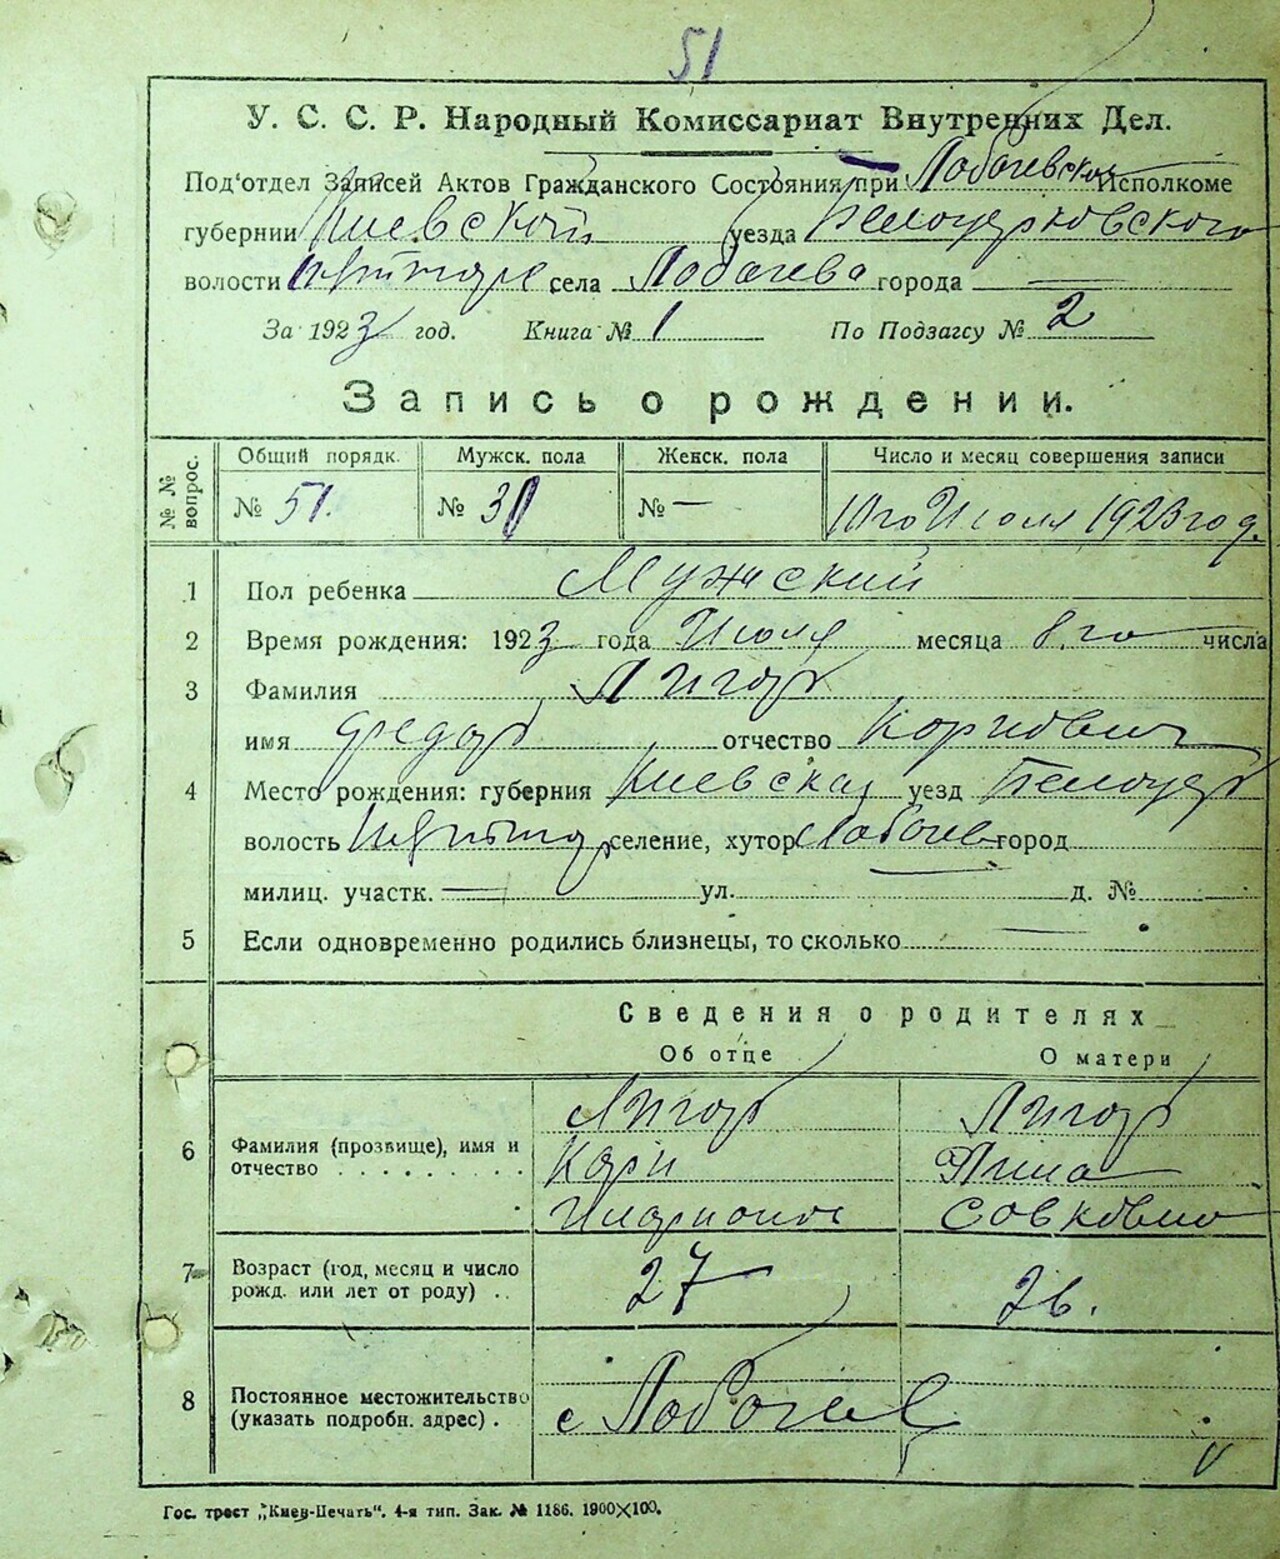 51
У. С. С. Р. Народный Комиссариат Внутренних Дел.
Под'отдел Записей Актов Гражданского Состояния при Лобачевском Исполкоме
губернии Киевской уезда Белоцерковского
волости села Лобачева города —
За 1923 год. Книга № 1 По Подзагсу № 2
Запись о рождении.
№ № вопрос. Общий порядк. Мужск. пола Женск. пола Число и месяц совершения записи
№ 51. № 30 № — 10го Июля 1923 год.
1 Пол ребенка Мужский
2 Время рождения: 1923 года Июля месяца 8.го числа
3 Фамилия Лигор
имя Федор отчество Корнович
4 Место рождения: губерния Киевская уезд Белоцер
волость селение, хутор Лобачев город
милиц. участк. — ул. — д. № —
5 Если одновременно родились близнецы, то сколько —
Сведения о родителях
Об отце О матери
6 Фамилия (прозвище), имя и отчество . . . . . . . . . Лигор Лигор
Карп
7 Возраст (год, месяц и число рожд. или лет от роду) . . 27 26.
8 Постоянное местожительство (указать подробн. адрес) . с Лобачев
Гос. трест „Киев-Печать“. 4-я тип. Зак. № 1186. 1900×100.